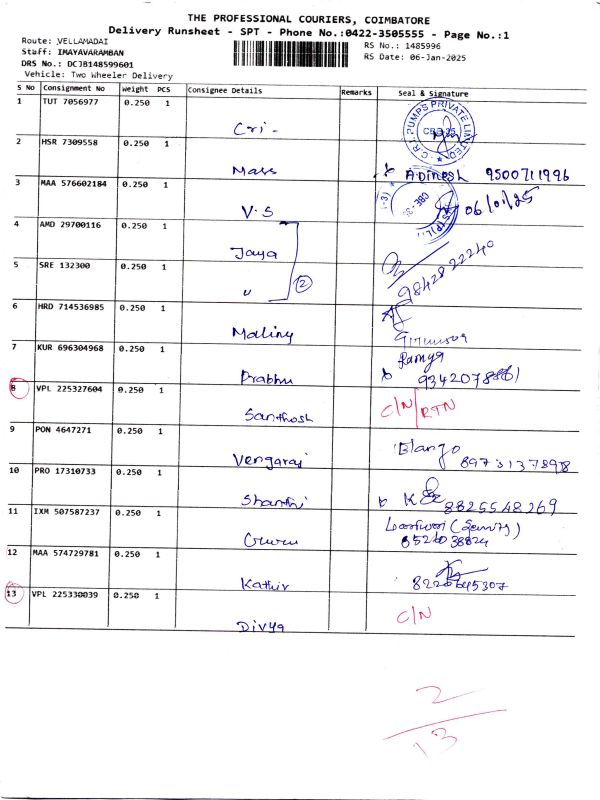 THE PROFESSIONAL COURIERS, COIMBATORE
Delivery Runsheet - SPT - Phone No.:0422-3505555 - Page No.:1
Route: VELLAMADAI
Staff: IMAYAVARAMBAN
DRS No.: DCJB148599601
Vehicle: Two Wheeler Delivery
RS No.: 1485996
RS Date: 06-Jan-2025
S No Consignment No Weight PCS Consignee Details Remarks Seal & Signature
1 TUT 7056977 0.250 1
Cri - C.R.I. PUMPS PRIVATE LIMITED
2 HSR 7309558 0.250 1
Mass A.Dinesh 9500711996
3 MAA 576602184 0.250 1
V.S 06/01/25
4 AMD 29700116 0.250 1
Jaya
5 SRE 132300 0.250 1
" 12 98428 22240
6 HRD 714536985 0.250 1
Maliny
7 KUR 696304968 0.250 1 Ramya
Prabhu
8 VPL 225327604 0.250 1 C/N/RTN
Santhosh
9 PON 4647271 0.250 1 Elango
Vengaraj
10 PRO 17310733 0.250 1
Shanthi 8825548269
11 IXM 507587237 0.250 1
Guru
12 MAA 574729781 0.250 1
Kathir
13 VPL 225330039 0.250 1 C/N
Divya
2
13